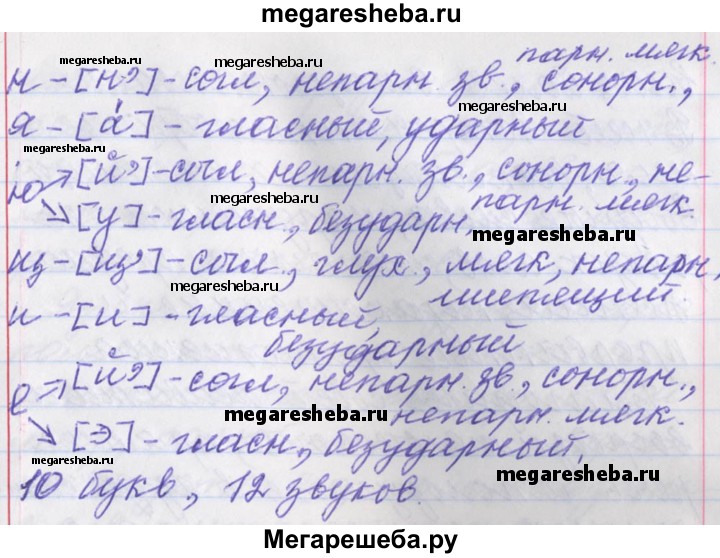 megaresheba.ru
парн. мягк.
н - [н'] - согл, непарн. зв., сонорн.,
я - [á] - гласный, ударный
ю → [й'] - согл, непарн. зв., сонорн., не-
парн. мягк.
↘ [у] - гласн., безударн,
щ - [щ'] - согл., глух., мягк, непарн,
шипящий.
и - [и] - гласный,
безударный
е → [й'] - согл, непарн. зв, сонорн.,
непарн. мягк.
↘ [э] - гласн., безударный,
10 букв, 12 звуков.
megaresheba.ru
megaresheba.ru
megaresheba.ru
megaresheba.ru
megaresheba.ru
megaresheba.ru
megaresheba.ru
megaresheba.ru
megaresheba.ru
Мегарешеба.ру